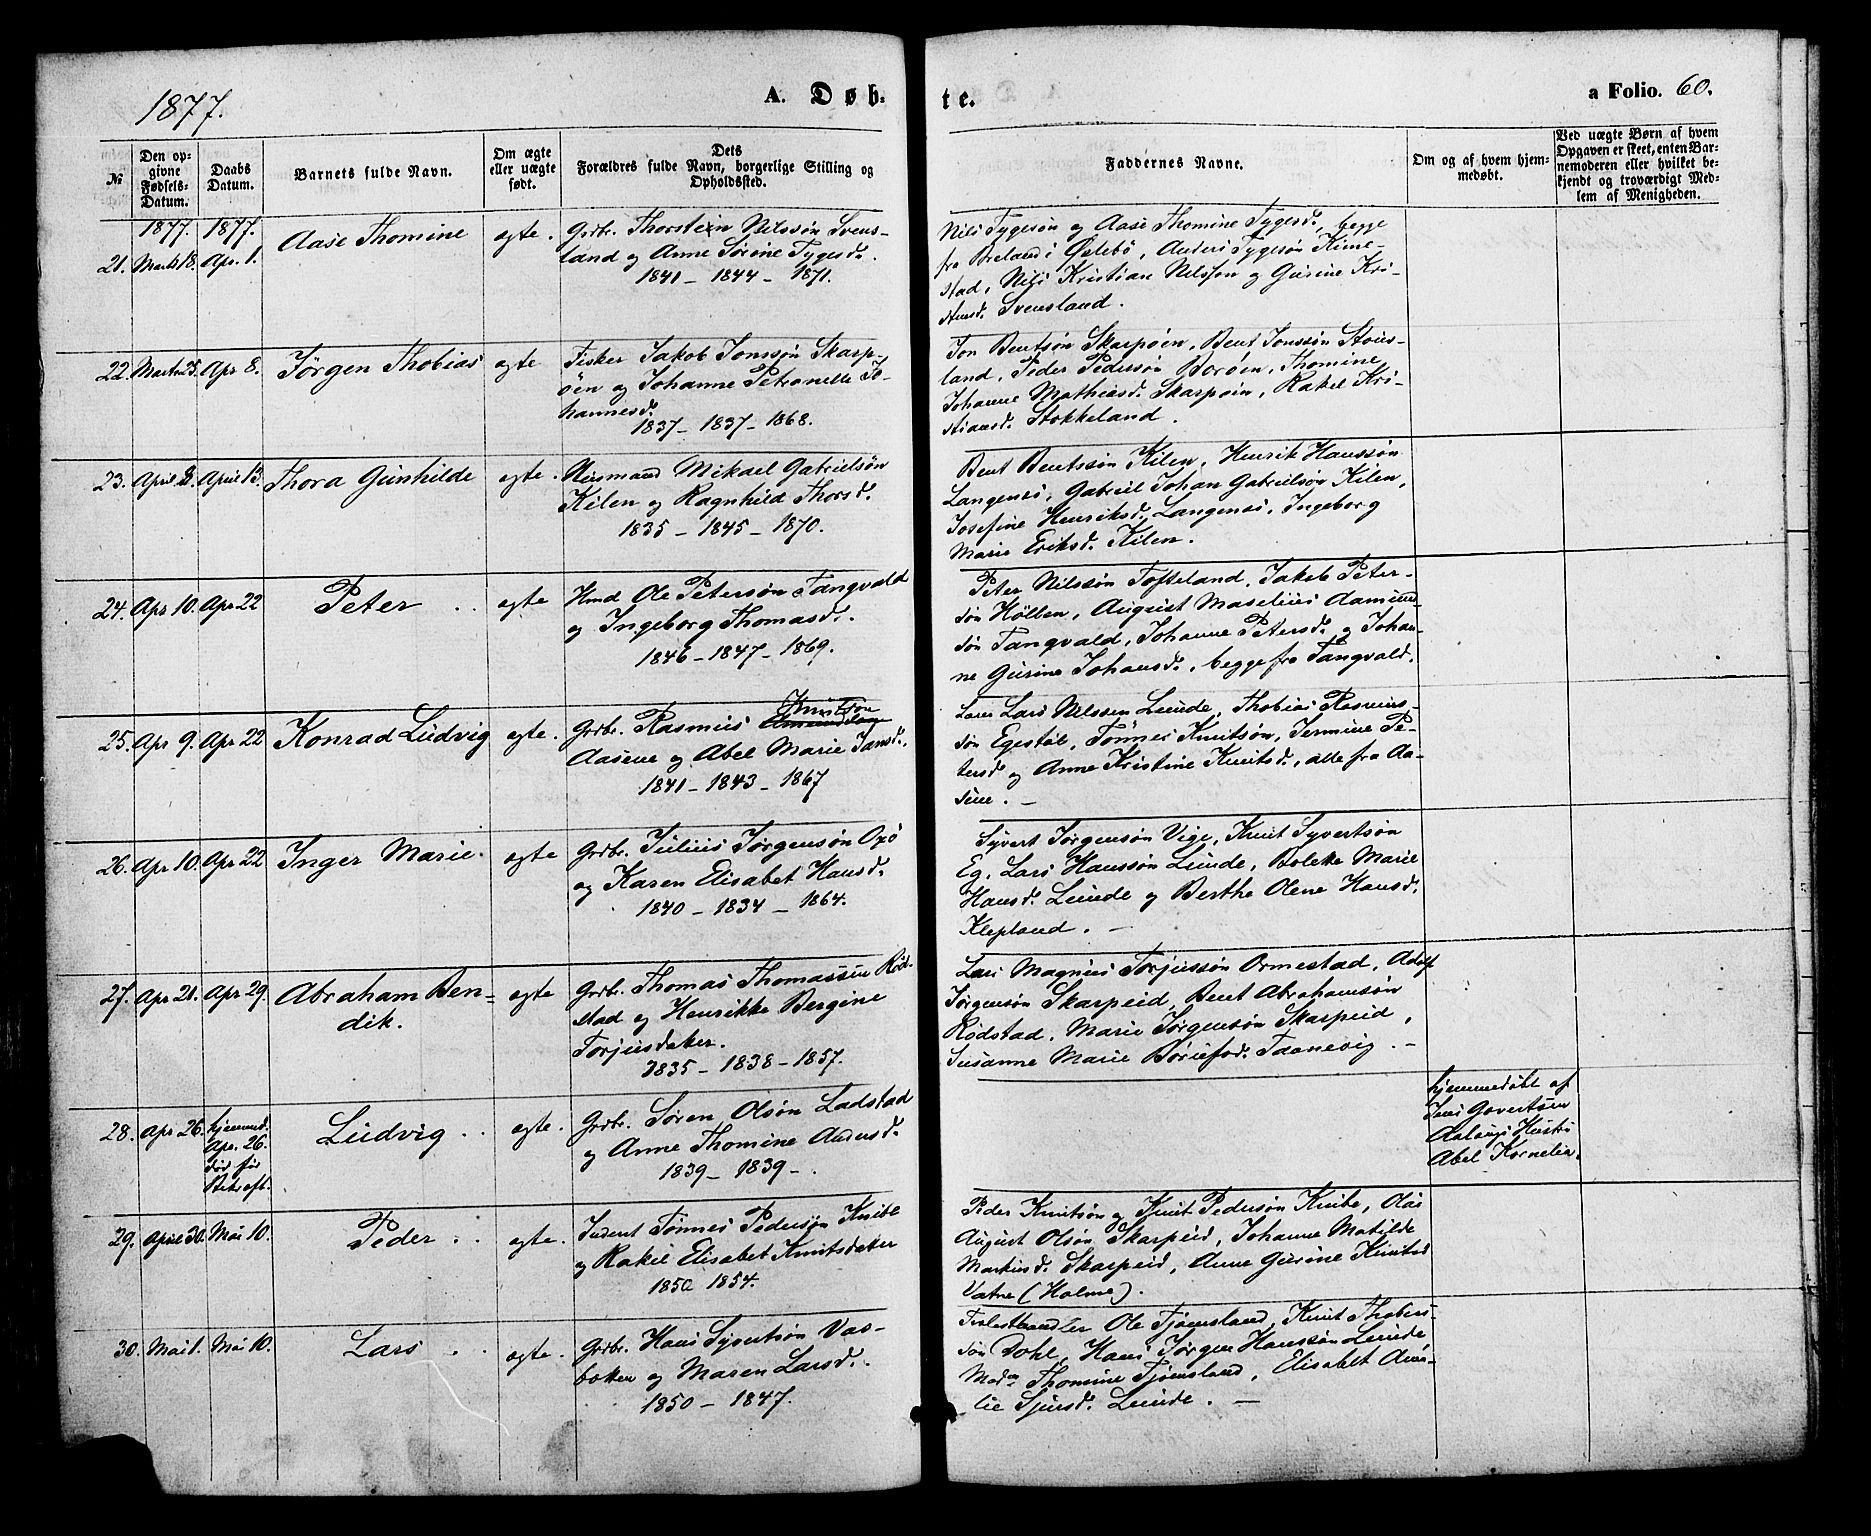 1877.
A. Døb-
te.
a Folio. 60.
№
Den op-
givne
Fødsels-
Datum.
Daabs
Datum.
Barnets fulde Navn.
Om ægte
eller uægte
født.
Dets
Forældres fulde Navn, borgerlige Stilling og
Opholdssted.
Faddernes Navne.
Om og af hvem hjem-
medøbt.
Ved uægte Børn af hvem
Opgaven er skeet, enten Bar-
nemoderen eller hvilket be-
kjendt og troværdigt Med-
lem af Menigheden.
1877. 1877.
21. Marts 18. Apr. 1. Aase Thomine egte.
Grdbr. Thorstein Nilssøn Svens-
land og Anne Sørine Tygesd.
1841 - 1844 - 1871.
Nils Tygesøn og Aase Thomine Tygesd., begge
fra Breland i Øslebö, Anders Tygesøn Kime-
stad, Nils Kristian Nilssøn og Gurine Kri-
stensd. Svensland.
22. Marts 25. Apr 8. Jörgen Thobias egte
Fisker Jakob Jonssøn Skarp-
öen og Johanne Petronelle Jo-
hannesd.
1837 - 1837 - 1868.
Jon Bentsøn Skarpøen, Bent Jonssøn Stous-
land, Peder Pedersøn Borøen, Thomine
Johanne Mathiasd. Skarpøen, Rakel Kri-
stiansd. Stokkeland.
23. April 8. April 13. Thora Gunhilde egte.
Huusmand Mikael Gabrielsøn
Kilen og Ragnhild Thorsd.
1835 - 1845 - 1870.
Bent Bentssøn Kilen, Henrik Hanssøn
Langenes, Gabriel Johan Gabrielsøn Kilen,
Josefine Henriksd. Langenes, Ingeborg
Marie Eriksd. Kilen.
24. Apr 10. Apr 22 Peter egte
Hmd Ole Petersøn Tangvald
og Ingeborg Thomasd.
1846 - 1847 - 1869.
Peter Nilssøn Tofteland, Jakob Peter-
søn Höllen, August Maselius Aamund-
søn Tangvald, Johanne Petersd. og Johan-
ne Gurine Johansd., begge fra Tangvald.
25. Apr 9. Apr 22 Konrad Ludvig egte.
Knutsøn
Grdbr. Rasmus
Aasene og Abel Marie Jansd.,
1841 - 1843 - 1867
Lars Nilssen Lunde, Thobias Rasmus-
søn Egestøl, Tönnes Knutsøn, Jermine Pe-
tersd og Anne Kristine Knutsd., alle fra Aa-
sene. -
26. Apr 10. Apr 22 Inger Marie. egte
Grdbr. Julius Jørgensøn Opö
og Karen Elisabet Hansd.
1840 - 1834 - 1864.
Syvert Jørgensøn Vige, Knut Syvertsøn
Eg, Lars Hanssøn Lunde, Bolette Marie
Hansd. Lunde og Berthe Olene Hansd.
Klepland. -
27. Apr 21. Apr 29. Abraham Ben-
dik. egte
Grdbr. Thomas Thomassen Rød-
stad og Henrikke Bergine
Torjusdater.
1835 - 1838 - 1857.
Lars Magnus Torjussøn Ormestad, Adolf
Jørgensøn Skarpeid, Bent Abrahamsøn
Rødstad, Marie Jørgensøn Skarpeid,
Susanne Marie Børufsd. Taanevig. -
28. Apr 26. hjemmed.
Apr. 26.
död før
Bekræft. Ludvig egte.
Grdbr. Søren Olsøn Ladstad
og Anne Thomine Andersd.
1839 - 1839 -
hjemmedøbt af
Jens Govertsen
Aalaugs Hustru
Abel Kornelia.
29. April 30. Mai 10. Peder egte.
Inderst Tønnes Pedersøn Knibe
og Rakel Elisabet Knutsdater
1850 1854.
Peder Knutsøn og Knut Pedersøn Knibe, Olai
August Olsøn Skarpeid, Johanne Matilde
Markusd. Skarpeid, Anne Gurine Knutsd
Vatne (Holme).
30. Mai 1. Mai 10. Lars egte.
Grdbr. Hans Syvertsøn Vas-
boken og Maren Larsd.
1850 - 1847.
Ole Tjømsland, Knut Thobias-
søn Dohl, Hans Jørgen Hanssøn Lunde
Madm Thomine Tjømsland, Elisabet Ama-
lie Sjursd. Lunde. -